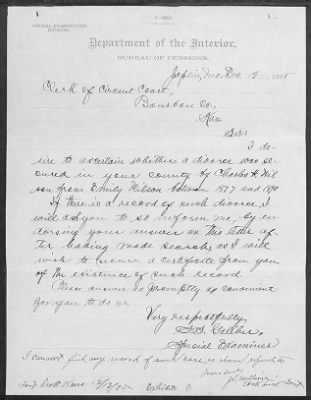 SPECIAL EXAMINATION
DIVISION.
Department of the Interior,
BUREAU OF PENSIONS.
Joplin, Mo. Dec
Clerk of Circuit Court,
Bourbon Co,
Kas
Sir:
I de-
sire to ascertain whether a divorce was se-
cured in your county by Charles Wil
son from Emily Wilson between 1877 and 1890
If there is a record of such divorce, I
will ask you to so inform me, by en-
dorsing your answer on this letter af-
ter having made search, as I will
wish to secure a certificate from you
of the existence of such record
Please answer as promptly as convenient
for you to do so.
Very respectfully,
Special Examiner
I cannot find any record of such case as above referred to
Yours truly
Fort Scott Kans Exhibit